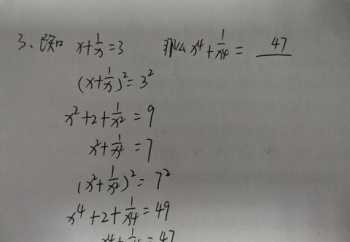 3、已知 x+1/x=3 那么 x⁴+1/x⁴= 47
(x+1/x)²=3²
x²+2+1/x²=9
x²+1/x²=7
(x²+1/x²)²=7²
x⁴+2+1/x⁴=49
x⁴+1/x⁴=47